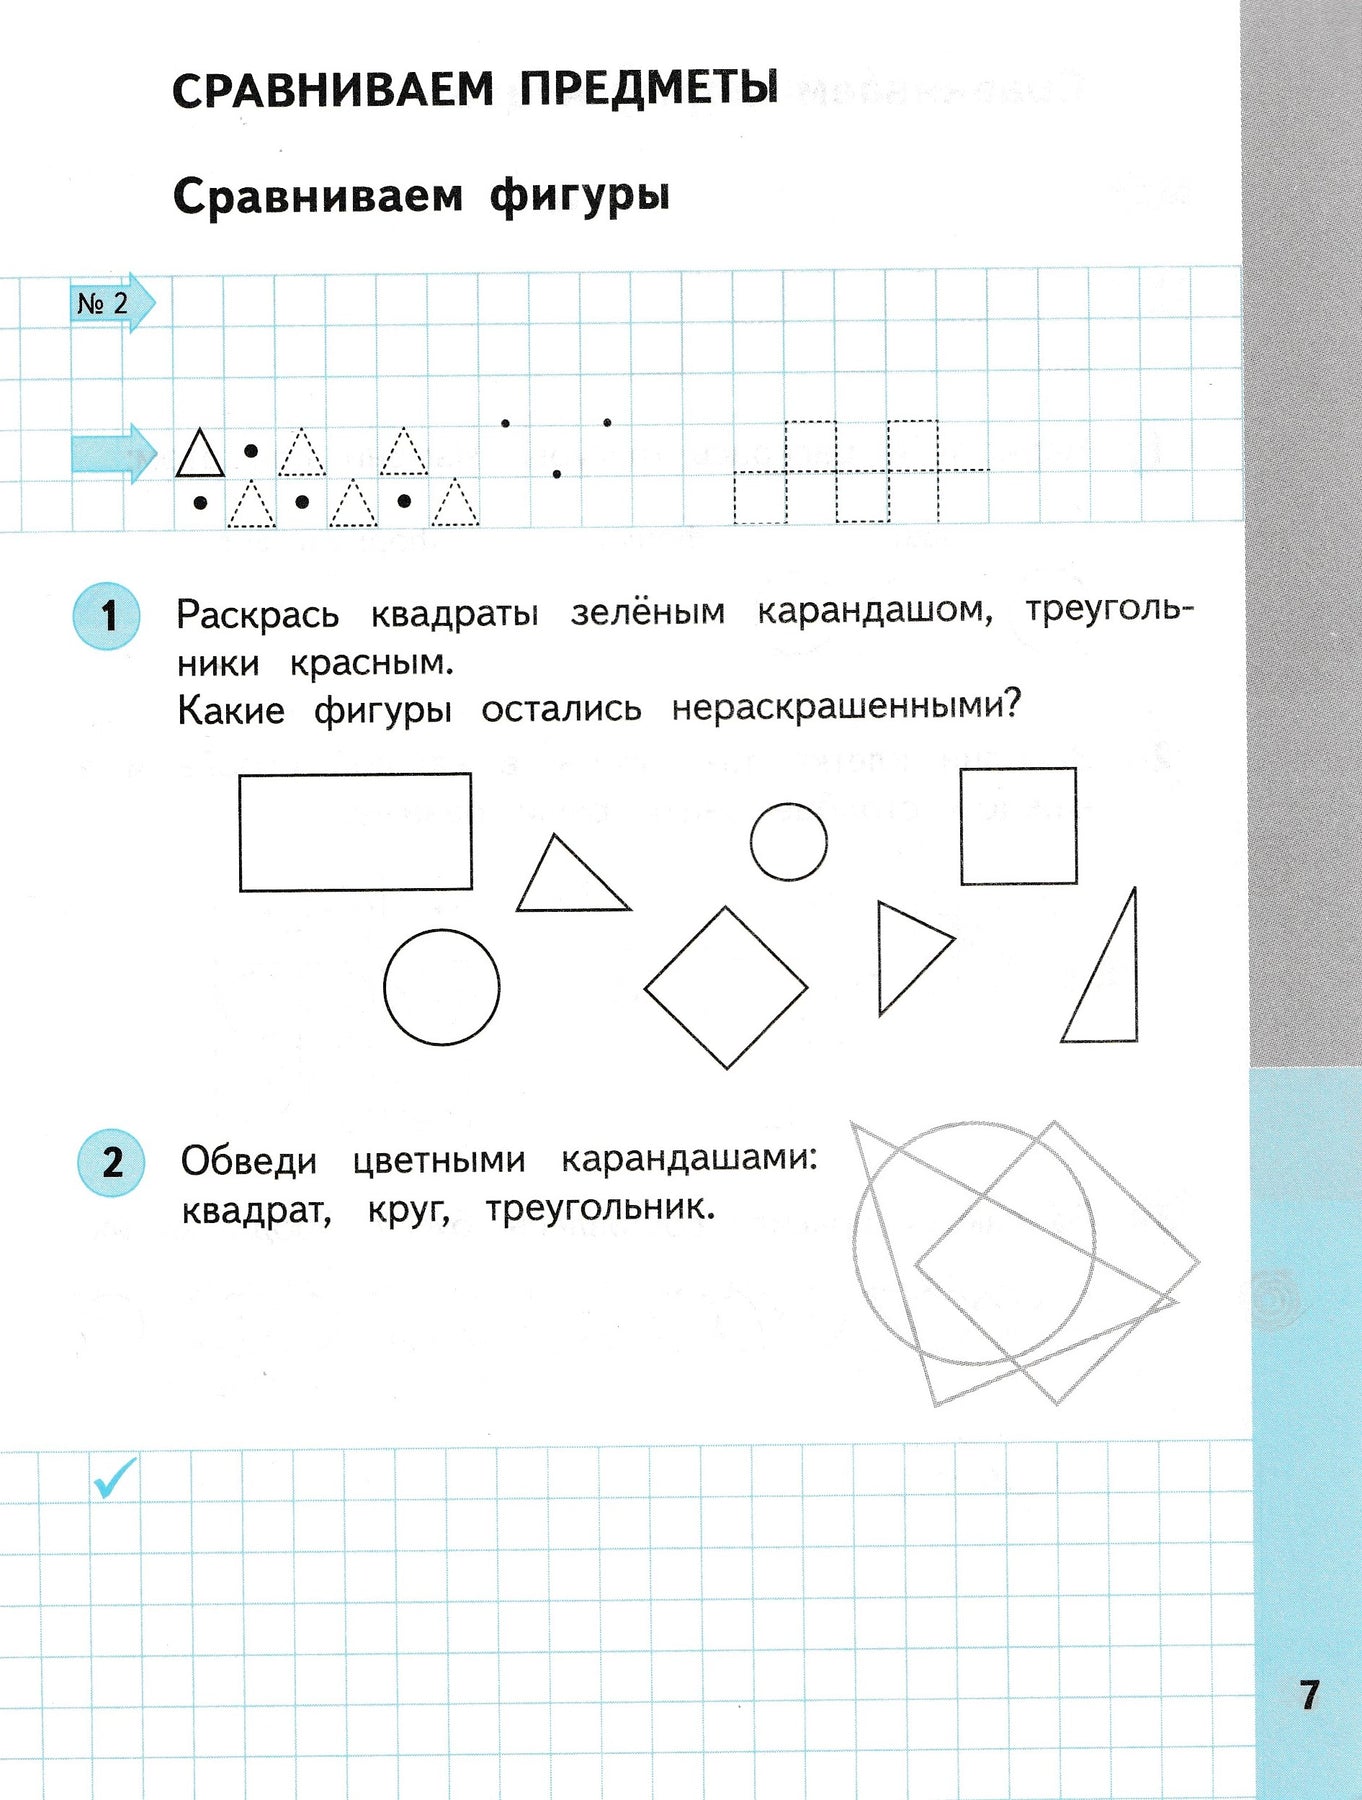 СРАВНИВАЕМ ПРЕДМЕТЫ
Сравниваем фигуры
№ 2
1
Раскрась квадраты зелёным карандашом, треуголь-
ники красным.
Какие фигуры остались нераскрашенными?
2
Обведи цветными карандашами:
квадрат, круг, треугольник.
7